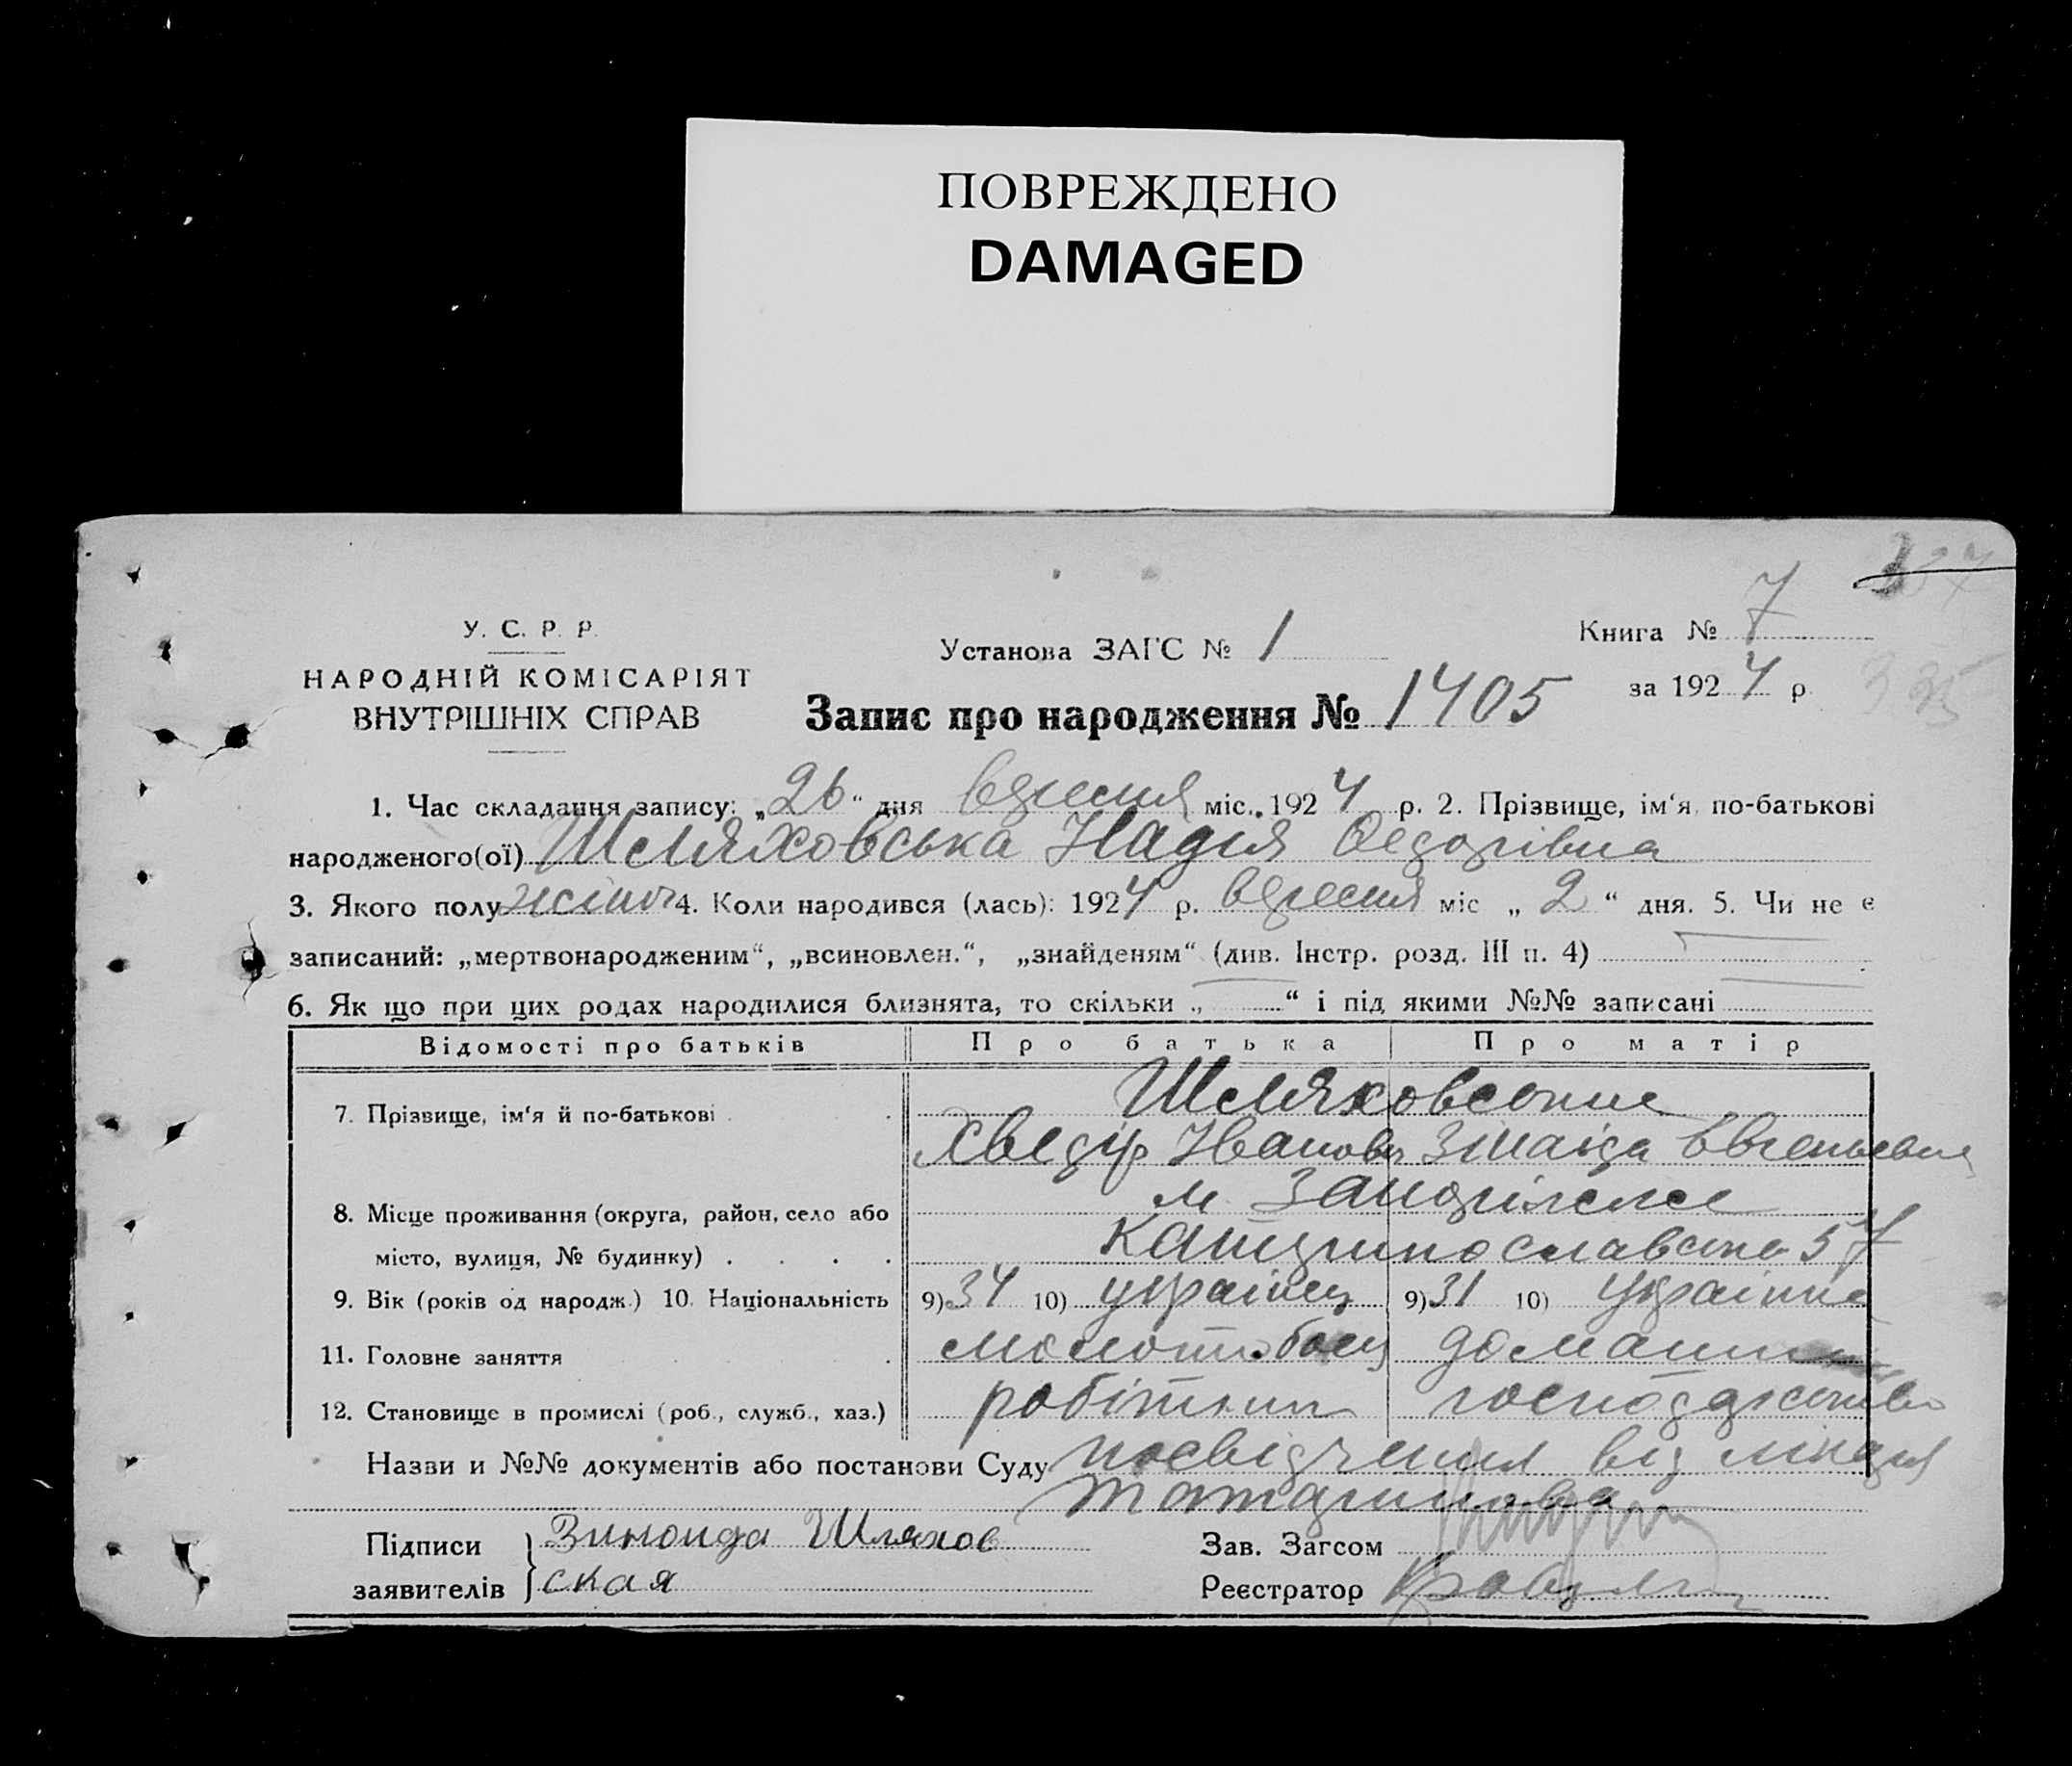 ПОВРЕЖДЕНО
DAMAGED
У. С. Р. Р.
НАРОДНІЙ КОМІСАРІЯТ
ВНУТРІШНІХ СПРАВ
Установа ЗАГС № 1
Запис про народження № 1405
Книга № 7
за 1924 р.
335
1. Час складання запису: „26“ дня вересня міс. 1924 р. 2. Прізвище, ім‘я, по-батькові
народженого(ої) Шляховська Надія Федорівна
3. Якого полу жіноч 4. Коли народився (лась): 1924 р. вересня міс „2“ дня. 5. Чи не є
записаний: „мертвонародженим“, „всиновлен.“, „знайденям“ (див. Інстр. розд. III п. 4)
6. Як що при цих родах народилися близнята, то скільки „ “ і під якими №№ записані
Відомості про батьків Про батька Про матір
7. Прізвище, ім‘я й по-батькові Шляховські
Хведір Іванов Зінаіда Євгеньевна
8. Місце проживання (округа, район, село або м. Запоріжжє
місто, вулиця, № будинку) Катеринославська 57
9. Вік (років од народж.) 10. Національність 9) 34 10) українец 9) 31 10) українка
11. Головне заняття молотобоец домашн
12. Становище в промислі (роб., служб., хаз.) робітник господарство
Назви и №№ документів або постанови Суду посвідчення від лікаря
Татаринова
Підписи заявителів Зинаида Шляхов
ская
Зав. Загсом
Реєстратор